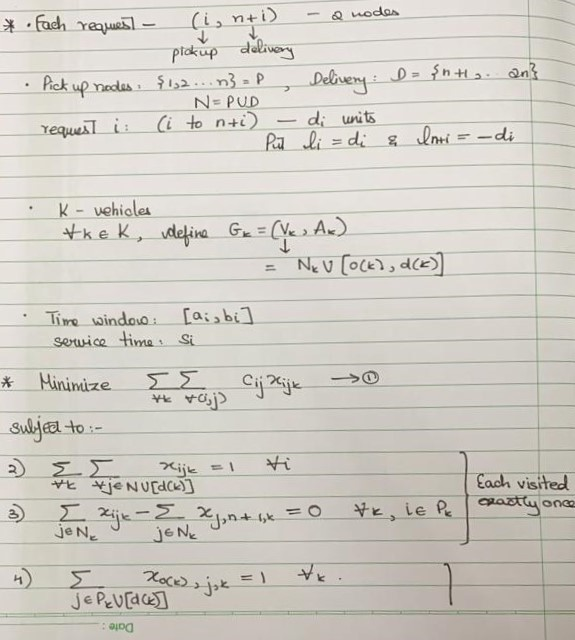 * · Each request – (i, n+i) – 2 nodes
↓ ↓
pickup delivery
· Pick up nodes: {1,2 ... n} = P , Delivery: D = {n+1, .. 2n}
N = PUD
request i: (i to n+i) – di units
Put li = di & ln+i = -di
· K - vehicles
∀k ∈ K, define Gk = (Vk, Ak)
↓
= Nk U [o(k), d(k)]
· Time window: [ai, bi]
service time: si
* Minimize ∑∀k ∑∀(i,j) Cij xijk → ①
subject to :-
2) ∑∀k ∑∀j∈NU[d(k)] xijk = 1 ∀i
Each visited
exactly once
3) ∑j∈Nk xijk - ∑j∈Nk xj,n+i,k = 0 ∀k, i∈Pk
4) ∑j∈PkU[d(k)] xo(k),j,k = 1 ∀k.
Date :